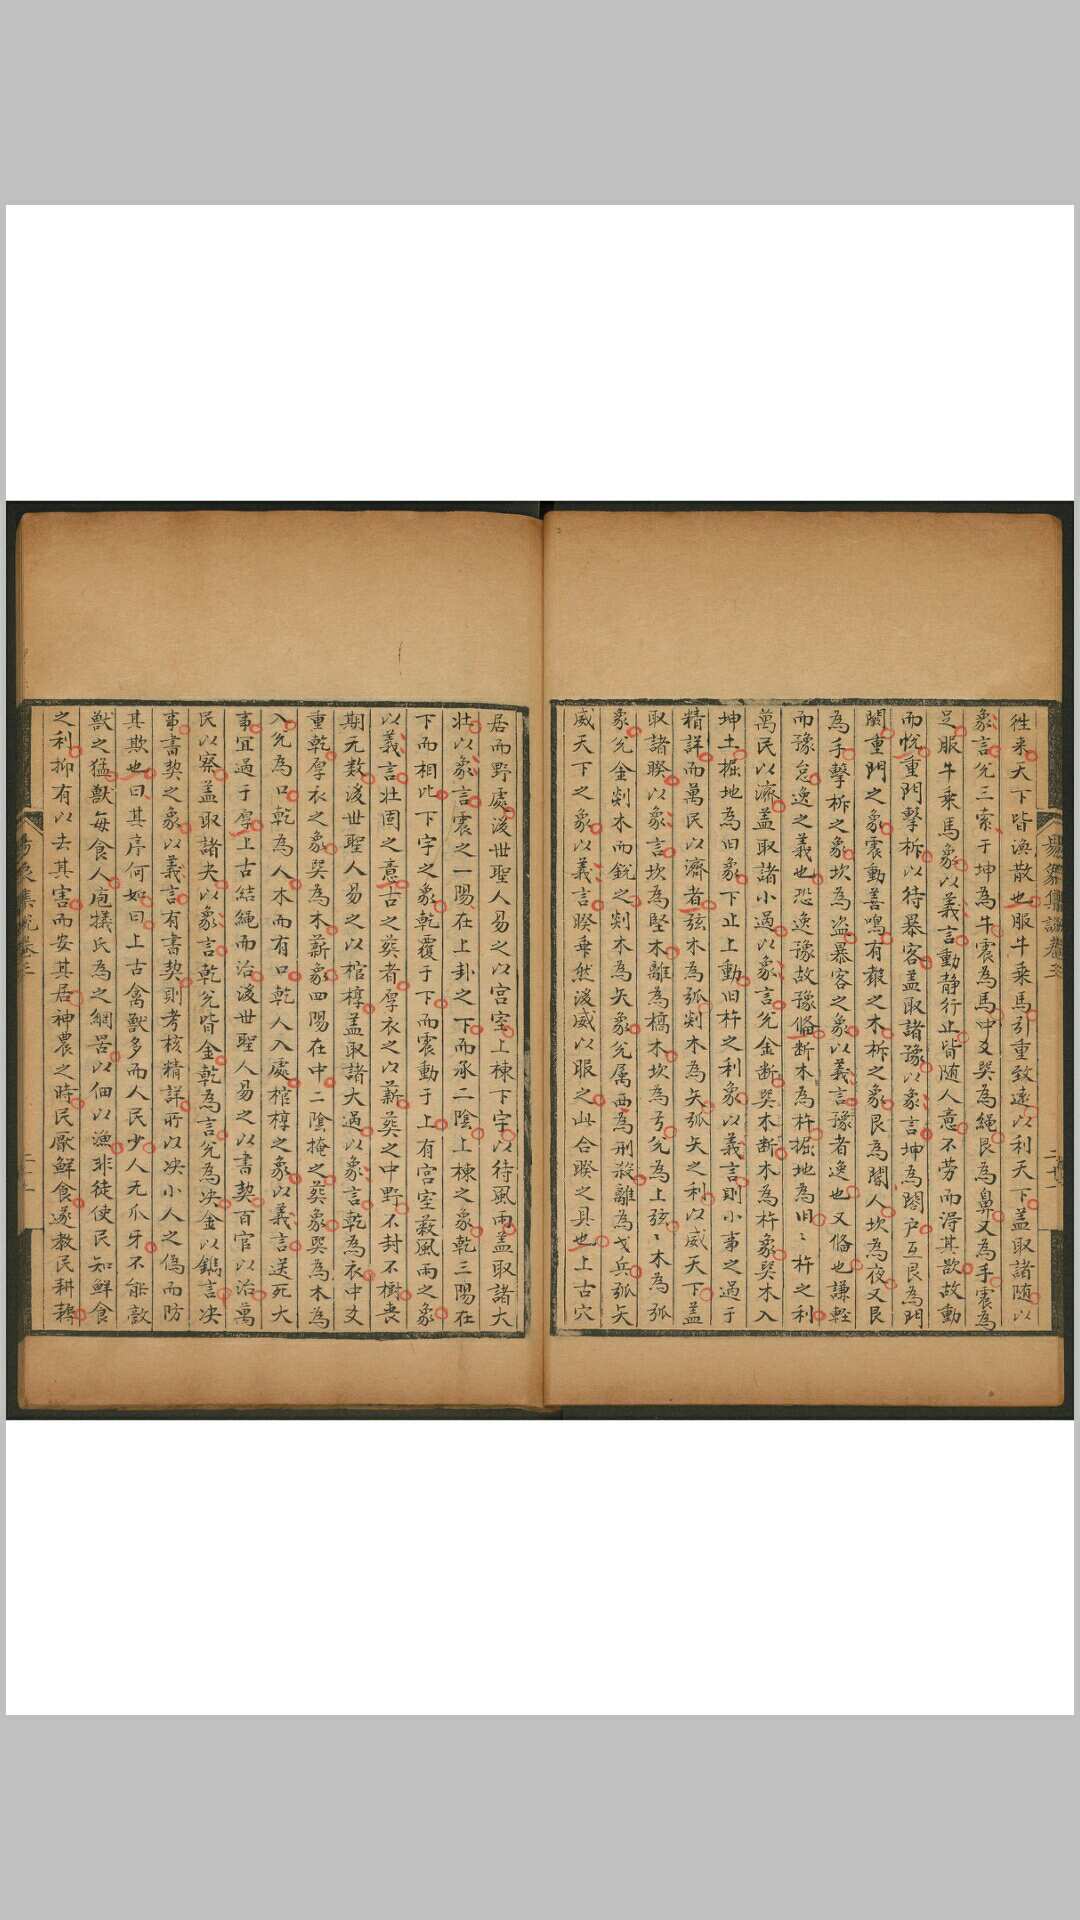 徃来天下皆渙散也服牛乗馬引重致遠以利天下盖取諸随以
象言兊三索于坤為牛震為馬中爻巽為繩艮為鼻又為手震為
足服牛乗馬象以義言動静行止皆随人意不劳而得其欲故動
而悅重門擊柝以待暴客盖取諸豫以象言坤為閤户互艮為門
闕重門之象震動善鳴有聲之木柝之象艮為閽人坎為夜又艮
為手擊柝之象坎為盗暴客之象以義言豫者逸也又偹也謙軽
而豫怠逸之義也恐逸豫故豫偹断木為杵掘地為臼〻杵之利
萬民以濟盖取諸小過以象言兊金断巽木断木為杵象巽木入
坤土掘地為臼象下止上動臼杵之利象以義言則小事之過于
精詳而萬民以濟者弦木為弧剡木為矢弧矢之利以威天下盖
取諸睽以象言坎為堅木離為槁木坎為弓兊為上弦〻木為弧
象兊金剡木而銳之剡木為矢象兊属西為刑殺離為戈兵弧矢
威天下之象以義言睽乖然後威以服之此合睽之具也上古穴
居而野處後世聖人易之以宫室上棟下宇以待風雨盖取諸大
壮以象言震之一陽在上卦之下而承二陰上棟之象乾三陽在
下而相比下宇之象乾覆于下而震動于上有宫室蔽風雨之象
以義言壮固之意古之葬者厚衣之以薪葬之中野不封不樹丧
期无数後世聖人易之以棺椁盖取諸大過以象言乾為衣中爻
重乾厚衣之象巽為木薪象四陽在中二陰掩之葬象巽為木為
入兊為口乾為人木而有口乾人入處棺椁之象以義言送死大
事宜過于厚上古結繩而治後世聖人易之以書契百官以治萬
民以察盖取諸夬以象言乾兊皆金乾為言兊為决金以鐫言决
事書契之象以義言有書契則考核精詳所以决小人之偽而防
其欺也曰其序何如曰上古禽獸多而人民少人无爪牙不能敵
獸之猛獸每食人庖犧氏為之網罟以佃以漁非徒使民知鮮食
之利抑有以去其害而安其居神農之時民厭鮮食遂教民耕耨